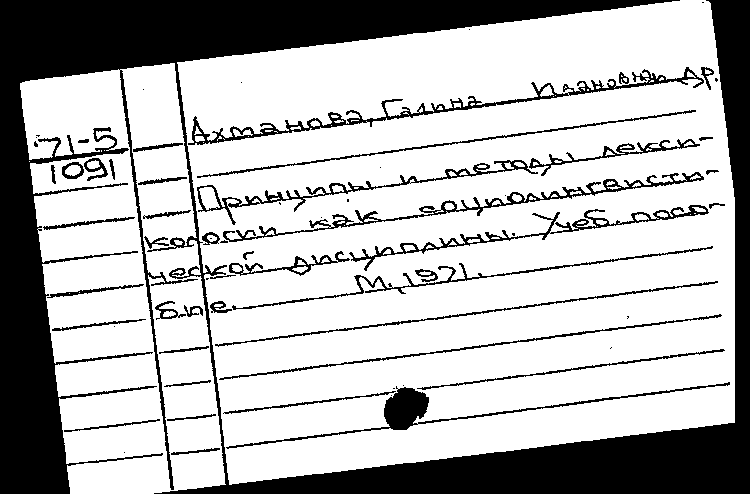 71-5
1091
Ахманова, Галина Ивановна и др.
Принципы и методы лекси-
кологии как социолингвисти-
ческой дисциплины. Учеб. посо-
бие. М., 1971.